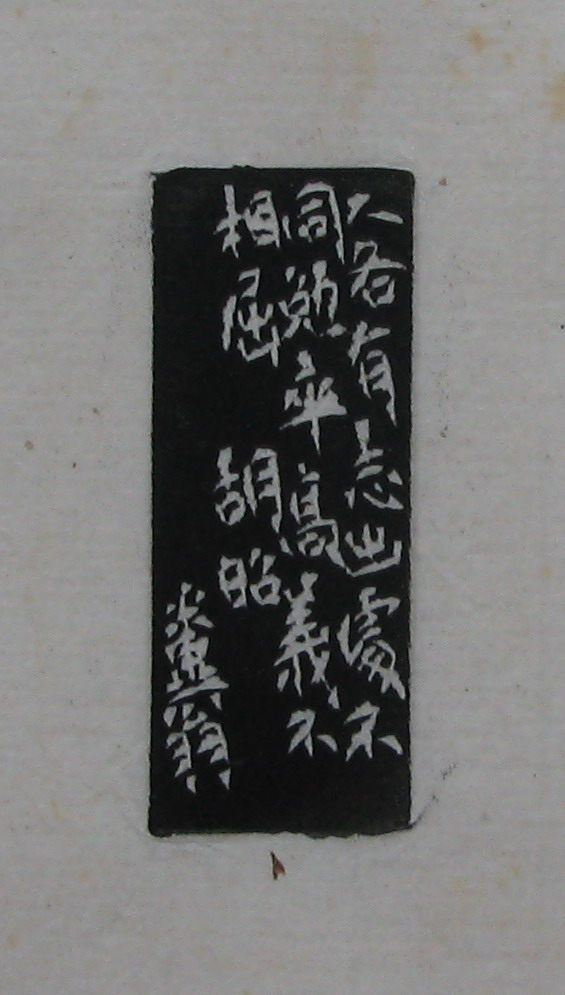 人各有志出處不
同勉卒高義不
相屈 胡昭
糞翁